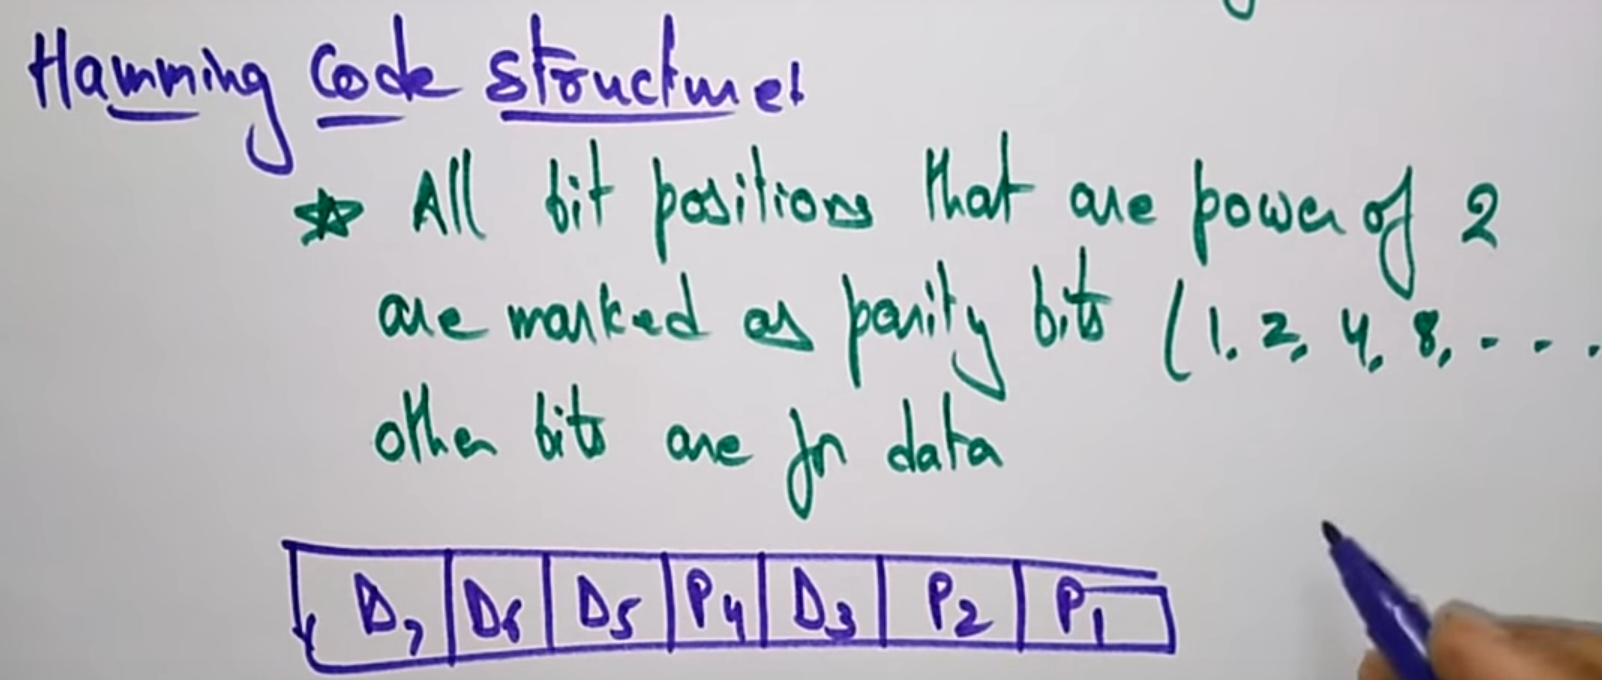 Hamming Code structure:
☆ All bit positions that are power of 2
are marked as parity bits (1, 2, 4, 8, - - - .
other bits are for data
D7 D6 D5 P4 D3 P2 P1